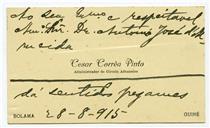 Ao seu Exmo e respeitavel
Am. Snr. Dr. Antonio José d'Al
meida
Cesar Corrêa Pinto
Administrador do Circulo Aduaneiro
dá sentidos pezames
BOLAMA 28-8-915- GUINÉ